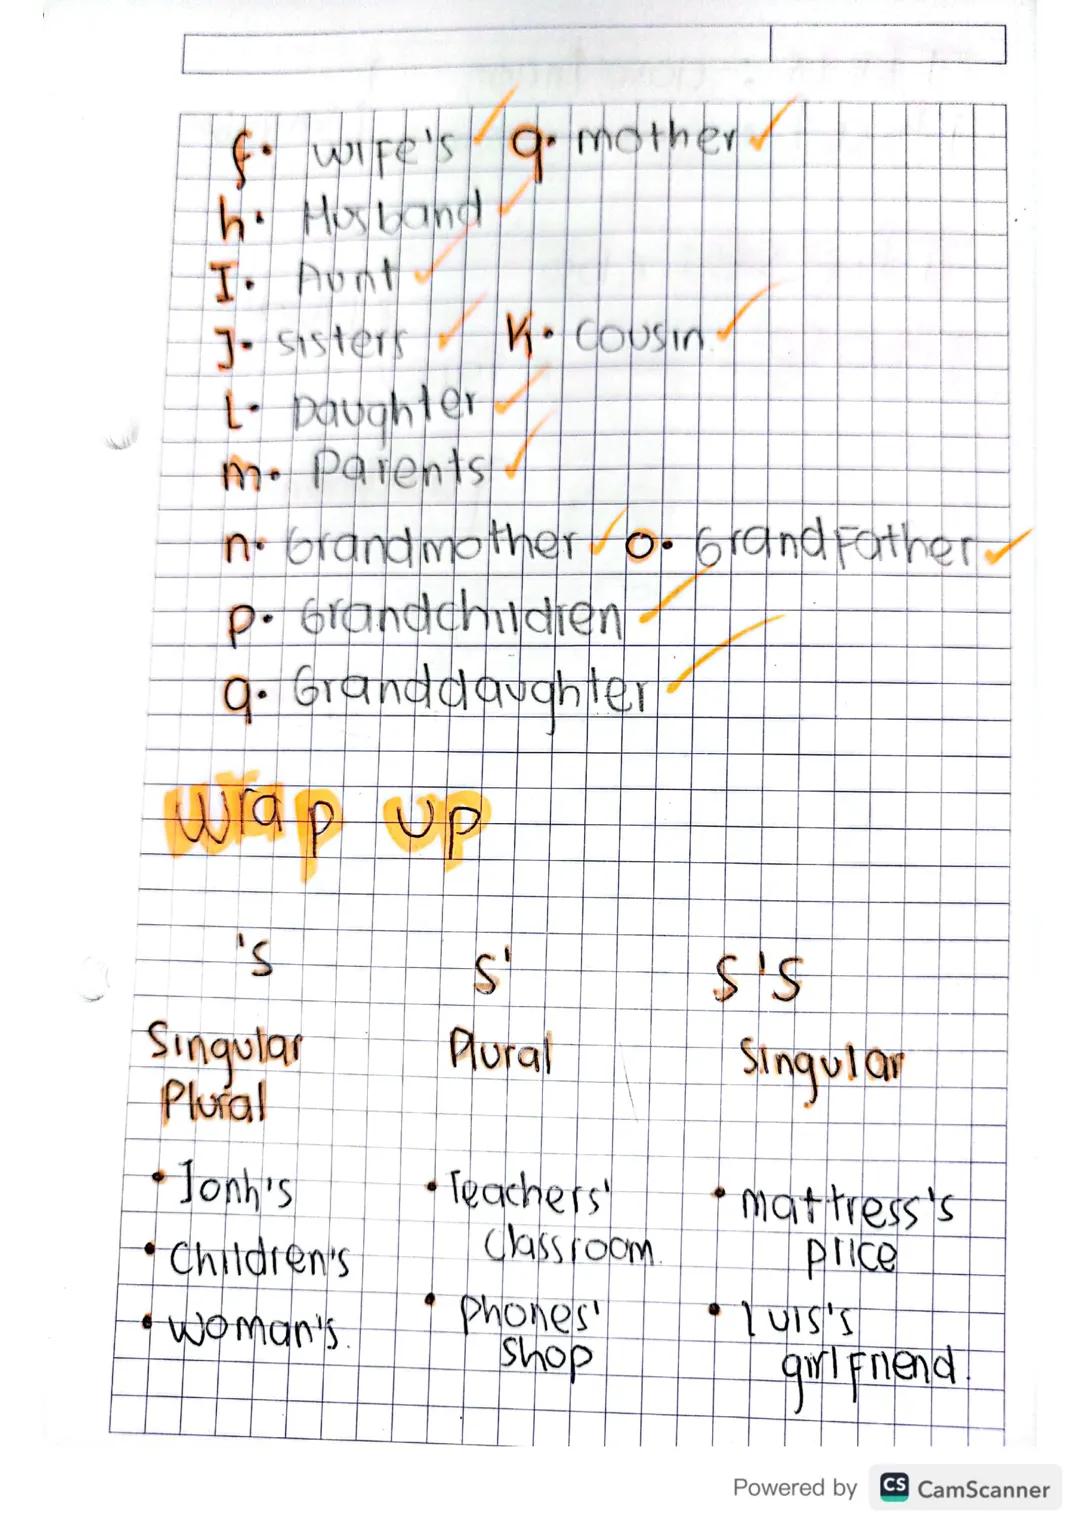 f. wife's g. mother
h. Husband
I. Aunt
J. sisters K. cousin
L. Daughter
m. Parents
n. Grandmother o. GrandFather
p. Grandchildren
q. Granddaughter
Wrap up
's s' s's
Singular Plural Singular
Plural
• Jonh's • Teachers' • mattress's
classroom. price
• Children's
• woman's. • phones' • luis's
shop girlfriend.
Powered by CS CamScanner